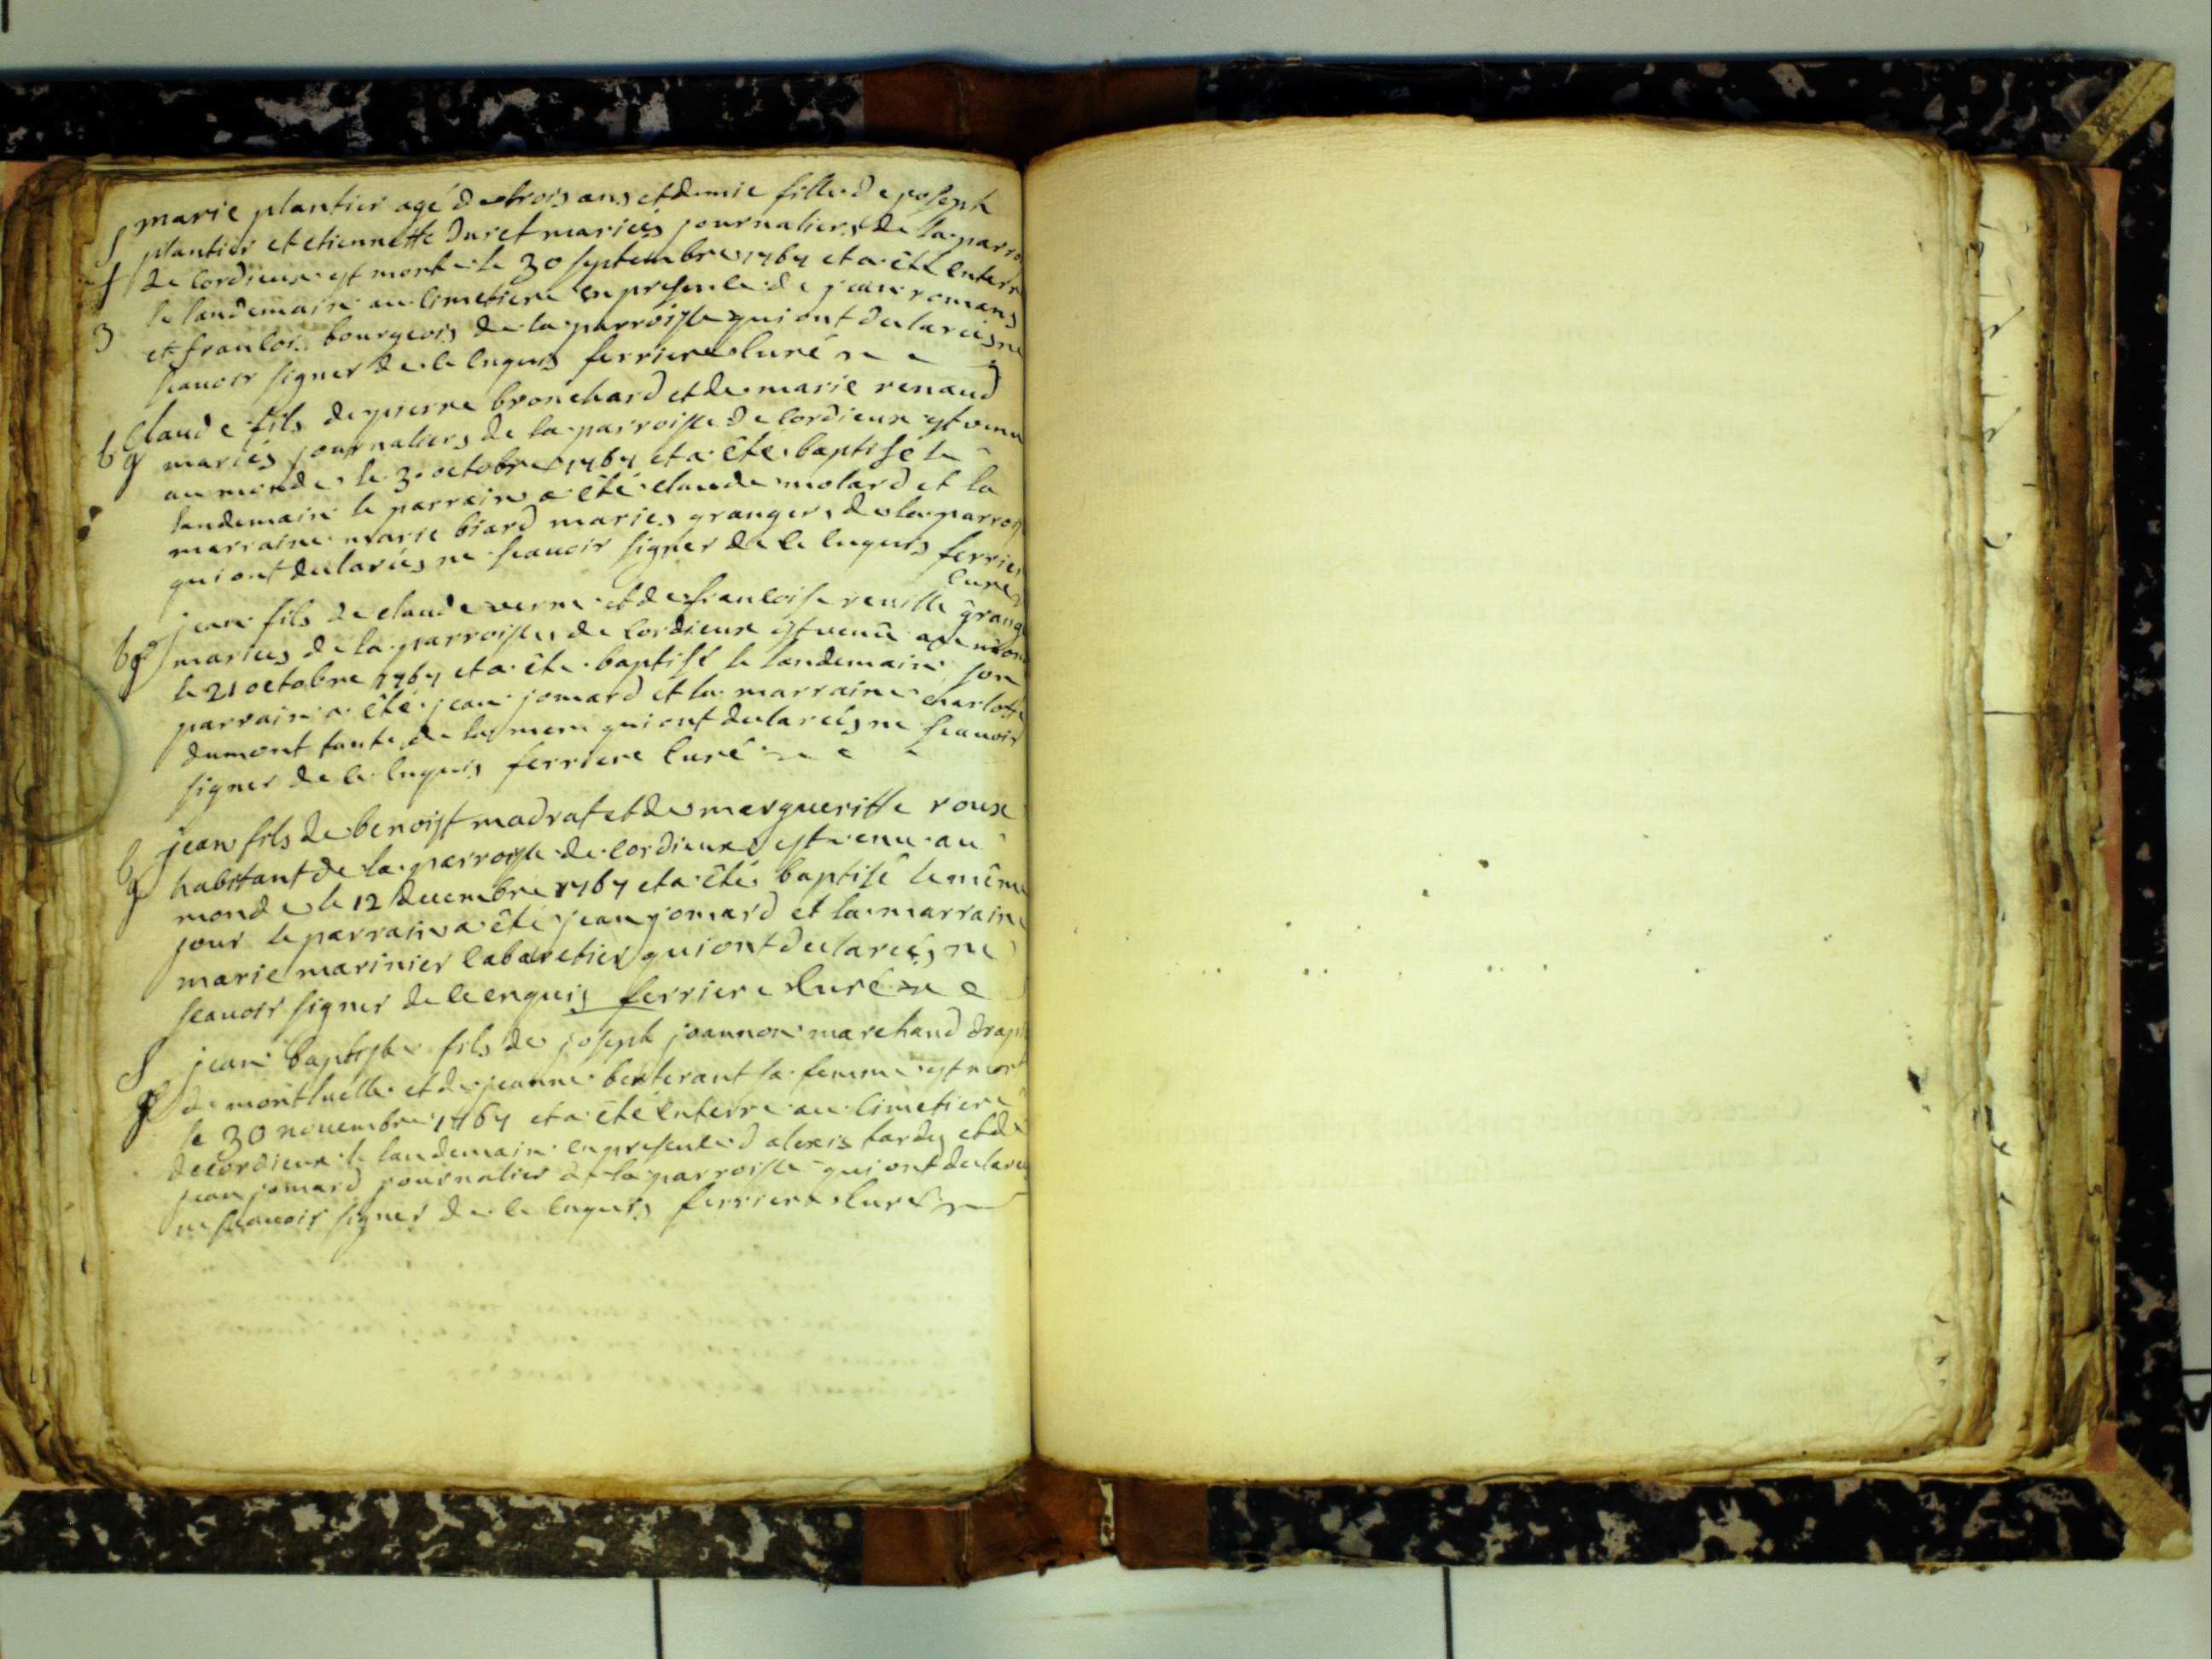 marie plantier agé de trois ans et demie fille de joseph
S plantier et etiennette Duret mariés journaliers de la parro
f de Cordieux est morte le 30 septembre 1764 et a été enterr
3 le landemain au Cimetiere en presence de jean romans
et francois bourgeois de la parroisse qui ont declarés ne
scavoir signer de ce enquis ferriere Curé
Claude fils de pierre bronchard et de marie renaud
b g mariés journaliers de la parroisse de Cordieux est venu
au monde le 3 octobre 1764 et a été baptisé le
landemain le parrain a été claude molard et la
marraine marie biard mariés grangers de la parrois
qui ont declarés ne scavoir signer de ce enquis ferrier
Curé
jean fils de claude verne et de francoise grang
b g mariés de la parroisse de Cordieux est venu au mon
le 21 octobre 1764 et a été baptisé le landemain son
parrain a été jean jomard et la marraine charlotte
dumont tante de la mere qui ont declarés ne scavoir
signer de ce enquis ferriere Curé
jean fils de benoist madrat et de margueritte roux
b habitant de la parroisse de Cordieux est venu au
g monde le 12 decembre 1764 et a été baptisé le même
jour le parrain a été jean jomard et la marraine
marie marinier Cabaretier qui ont declarés ne
scavoir signer de ce enquis ferriere Curé
S jean baptiste fils de joseph joannon marchand drapi
g de montluelle et de jeanne sa femme est mort
le 30 novembre 1764 et a été enterré au Cimetiere
de Cordieux le landemain en presence d alexis tardy et de
jean jomard journalier de la parroisse qui ont declaré
ne scavoir signer de ce enquis ferriere Curé